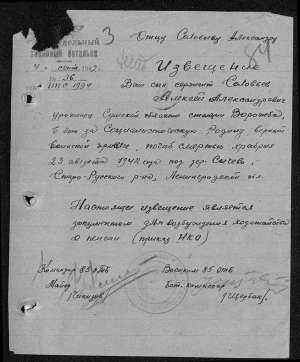 Отцу Соловьеву Александру
Отдельный
танковый батальон
Извещение
Ваш сын сержант Соловьев
Алексей Александрович
уроженец Сумской области станции Ворожба
в бою за Социалистическую Родину, верный
воинской присяге, погиб смертью храбрых
23 августа 1942 года под дер. Сычево
Старо-Русского р-на, Ленинградской обл.
Настоящее извещение является
документом для возбуждения ходатайства
о пенсии (приказ НКО)
Командир 85 отб Военком 85 ОТБ
Майор Бат. комиссар